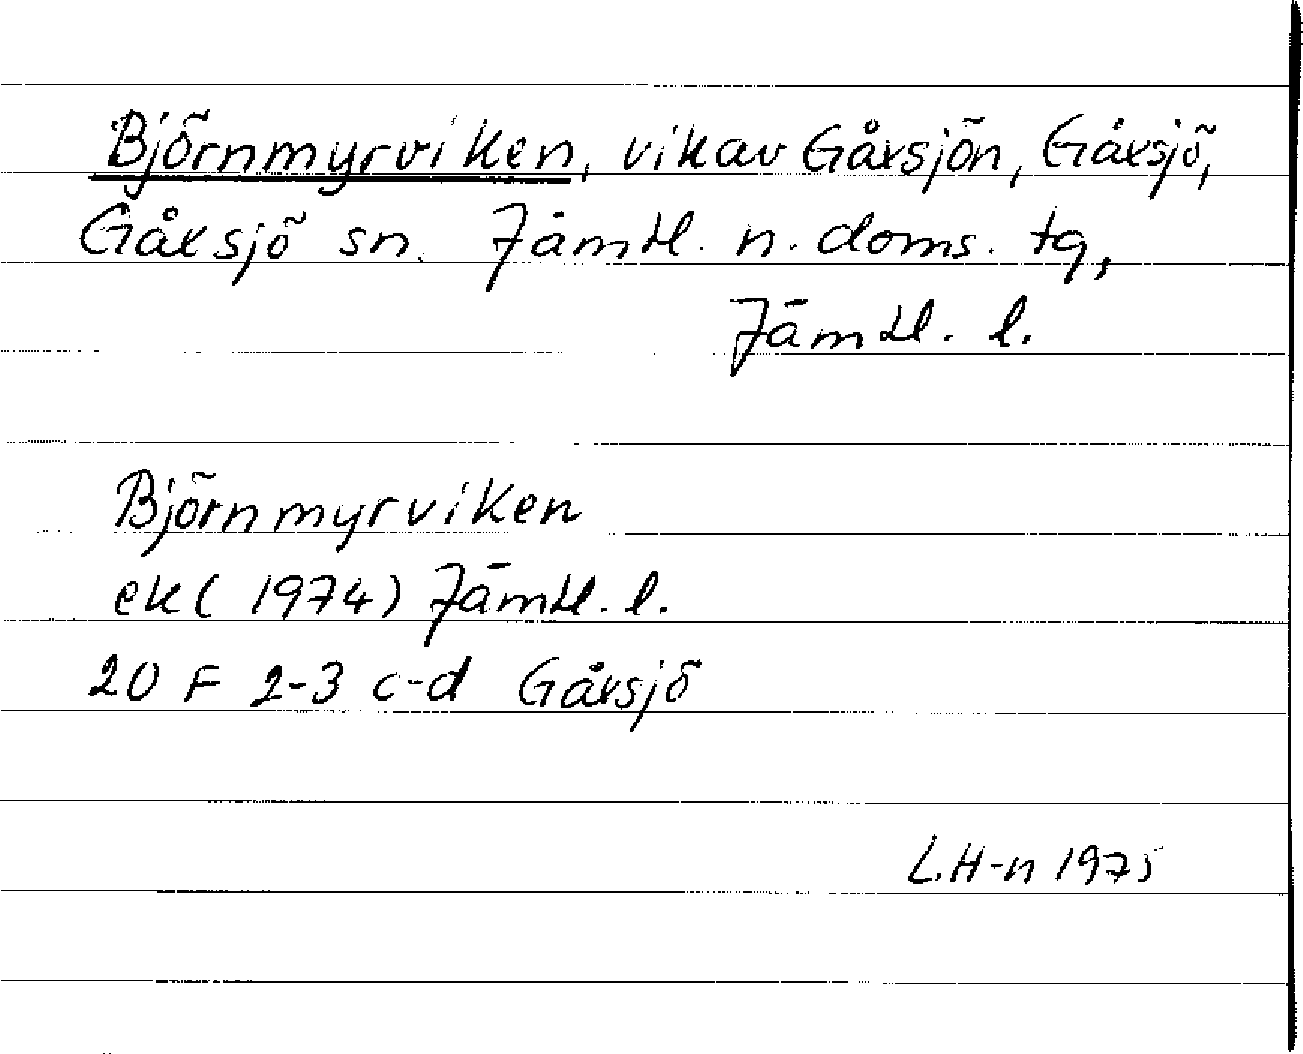 Björnmyrviken, vik av Gåxsjön, Gåxsjö,
Gåxsjö sn. Jämtl. n. doms. tg,
Jämtl. l.
Björnmyrviken
ek (1974) Jämtl. l.
20 F 2-3 c-d Gåxsjö
L.H-n 1975